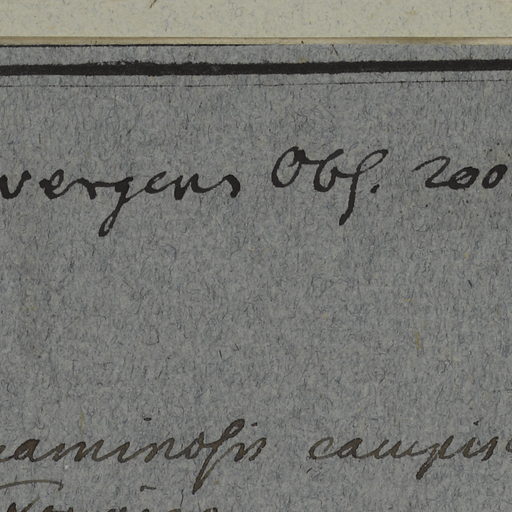 vergens Obſ. 200
raminoſis campis